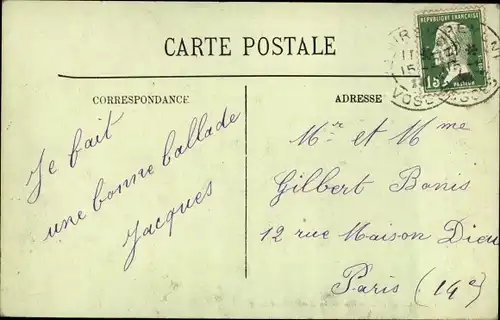 CARTE POSTALE
RÉPUBLIQUE FRANÇAISE
15c
PASTEUR
VOSGES
CORRESPONDANCE
ADRESSE
Je fait
une bonne ballade
Jacques
Mr et Mme
Gilbert Bonis
12 rue Maison Dieu
Paris (14e)